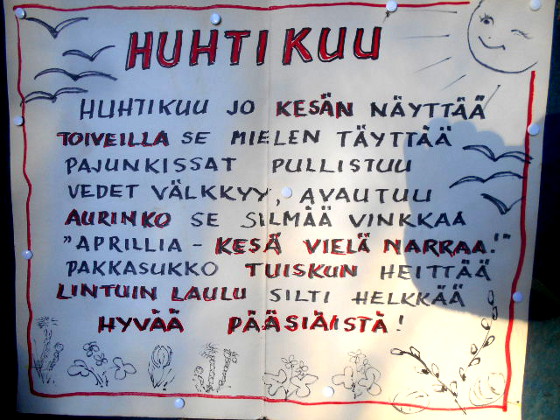 HUHTIKUU
HUHTIKUU JO KESÄN NÄYTTÄÄ
TOIVEILLA SE MIELEN TÄYTTÄÄ
PAJUNKISSAT PULLISTUU
VEDET VÄLKKYY, AVAUTUU
AURINKO SE SILMÄÄ VINKKAA
"APRILLIA - KESÄ VIELÄ NARRAA!"
PAKKASUKKO TUISKUN HEITTÄÄ
LINTUIN LAULU SILTI HELKKÄÄ
HYVÄÄ PÄÄSIÄISTÄ!